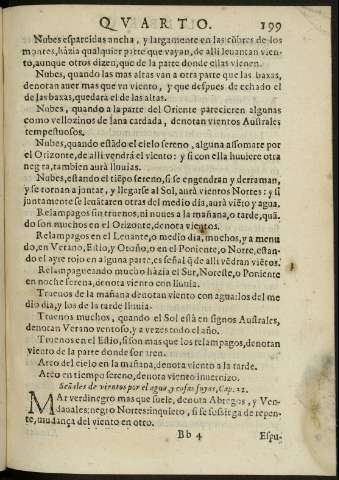 QVARTO. 199
Nubes esparcidas ancha, y largamente en las cũbres de los
montes, hàzia qualquier parte que vayan, de alli leuantan vien-
to, aunque otros dizen, que de la parte donde ellas vienen.
Nubes, quando las mas altas van a otra parte que las baxas,
denotan auer mas que vn viento, y que despues de echado el
de las baxas, quedara el de las altas.
Nubes, quando a la parte del Oriente parecieren algunas
como vellozinos de lana cardada, denotan vientos Australes
tempestuosos.
Nubes, quando estãdo el cielo sereno, alguna assomare por
el Orizonte, de alli vendrá el viento: y si con ella huuiere otra
negra, tambien aurà lluuias.
Nubes, estando el tiẽpo sereno, si se engendran y derraman,
y se tornan a juntar, y llegarse al Sol, aurà vientos Nortes: y si
juntamente se leuãtaren otras del medio dia, aurà viẽto y agua.
Relampagos sin truenos, ni nuues a la mañana, o tarde, quã-
do son muchos en el Orizonte, denota viẽtos.
Relampagos en el Leuante, o medio dia, mochos, y a menu
do, en Verano, Estio, y Otoño, o en el Poniente, o Norte, estan-
do el ayre rojo en alguna parte, es señal q̃ de alli vẽdran viẽtos.
Relampagueando mucho hàzia el Sur, Noreste, o Poniente
en noche serena, denota viento con lluuia.
Truenos de la mañana denotan viento con agua: los del me
dio dia, y los de la tarde lluuia.
Truenos muchos, quando el Sol està en signos Australes,
denotan Verano ventoso, y a vezes todo el año.
Truenos en el Estio, si son mas que los relampagos, denotan
viento de la parte donde sonaren.
Arco del cielo en la mañana, denota viento a la tarde.
Arco en tiempo sereno, denota viento inuernizo.
Señales de vientos por el agua, y cosas suyas, Cap. 12.
MAr verdinegro mas que suele, denota Abregos, y Ven-
dauales: negro Nortes: inquieto, si se sossiega de repen-
te, mudança del viento en otro.
Bb 4 Espu-